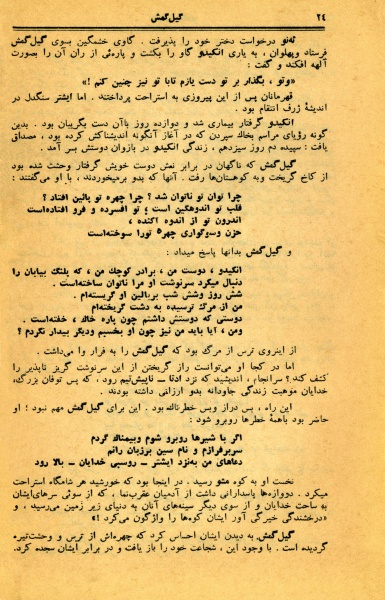 ۲۴
گیل‌گمش
ئه‌نو درخواست دختر خود را پذیرفت . گاوی خشمگین بسوی گیل‌گمش
فرستاد وپهلوان ، به یاری انکیدو گاو را بکشت و پاره‌ئی از ران آن را بصورت
آلهه افکند و گفت :
«وتو ، بگذار بر تو دست یازم تابا تو نیز چنین کنم !»
قهرمانان پس از این پیروزی به استراحت پرداختند . اما ایشتر سنگدل در
اندیشهٔ ژرف انتقام بود .
انکیدو گرفتار بیماری شد و دوازده روز باآن دست بگریبان بود . بدین
گونه رؤیای مراسم بخاك سپردن که در آغاز آنگونه اندیشناکش کرده بود ، مصداق
یافت : سپیده دم روز سیزدهم ، زندگی انکیدو در بازوان دوستش بسر آمد .
گیل‌گمش که ناگهان در برابر نعش دوست خویش گرفتار وحشت شده بود
از کاخ گریخت وبه کوهستان‌ها رفت . آنها که بدو برمیخوردند ، با او می‌گفتند :
چرا توان تو ناتوان شد ؟ چرا چهره تو پائین افتاد ؟
قلب تو اندوهگین است ، تو افسرده و فرو افتاده‌است
اندرون تو از اندوه آکنده ،
حزن وسوگواری چهرهٔ تورا سوخته‌است
و گیل‌گمش بدانها پاسخ میداد :
انکیدو ، دوست من ، برادر کوچك من ، که پلنگ بیابان را
دنبال میکرد سرنوشت او مرا ناتوان ساخته‌است .
شش روز وشش شب بربالین او گریسته‌ام .
من از مرگ ترسیده به دشت گریخته‌ام
دوستی که دوستش داشتم چون پاره خاك ، خفته‌است .
ومن ، آیا باید من نیز چون او بخسبم ودیگر بیدار نگردم ؟
از اینروی ترس از مرگ بود که گیل‌گمش را به فرار وا می‌داشت .
اما در کجا او می‌توانست راز گریختن از این سرنوشت گریز ناپذیر را
کشف کند ؟ سرانجام ، اندیشید که نزد ادتا ــ ناپیش‌تیم رود ، که پس توفان بزرگ،
خدایان موهبت زندگی جاودانه بدو ارزانی داشته بودند .
این راه ، بس دراز وبس خطرناك بود . این برای گیل‌گمش مهم نبود ؛ او
حاضر بود باهمهٔ خطرها روبرو شود :
اگر با شیرها روبرو شوم وبیمناك گردم
سربرفرازم و نام سین برزبان رانم
دعاهای من به‌نزد ایشتر ــ روسپی خدایان ــ بالا رود
نخست او به کوه مشو رسید . در اینجا بود که خورشید هر شامگاه استراحت
میکرد . دروازه‌ها پاسدارانی داشت از آدمیان عقرب‌نما ، که از سوئی سرهای‌ایشان
به ساحت خدایان و از سوی دیگر سینه‌های آنان به دنیای زیر زمین می‌رسید ، و
«درخشندگی خیرگی آور ایشان کوه‌ها را واژگون می‌کرد !»
گیل‌گمش به دیدن ایشان احساس کرد که چهره‌اش از ترس و وحشت‌تیره
گردیده است . با وجود این ، شجاعت خود را باز یافت و در برابر ایشان سجده کرد.